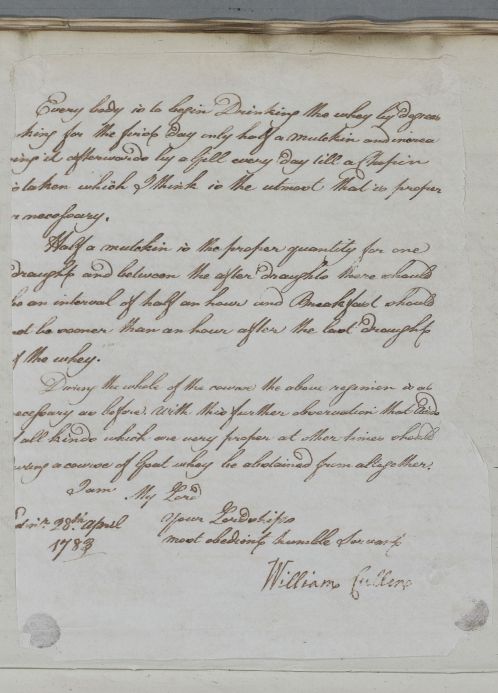 Every body is to begin Drinking the whey by degrees
king for the first day only half a mutchkin and increa
sing it afterwards by a Gill every day till a Chopin
is taken which I think is the utmost that is proper
or necessary.
Half a mutchkin is the proper quantity for one
draught and between the after draughts there should
be an interval of half an hour and Breakfast should
not be sooner than an hour after the last draught
of the whey.
During the whole of the course the above regimen is as
necessary as before. with this further observation that
of all kinds which are very proper at other times should
during a course of Goat whey be abstained from altogether.
I am My Lord
Edinr. 28th April Your Lordships
1783 most obedient humble Servant
William Cullen